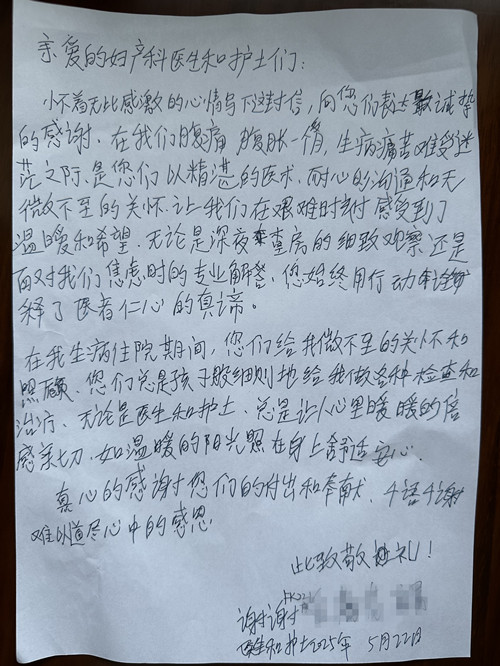 亲爱的妇产科医生和护士们:
怀着无比感激的心情写下这封信,向您们表达最诚挚
的感谢.在我们腹痛 腹胀 生病痛苦难受迷
茫之际.是您们以精湛的医术、耐心的沟通和无
微不至的关怀.让我们在艰难时刻感受到了
温暖和希望.无论是深夜查房的细致观察还是
面对我们焦虑时的专业解答、您始终用行动诠
释了医者仁心的真谛。
在我生病住院期间,您们给我微不至的关怀和
照顾、您们总是孜孜般细则地给我做各种检查和
治疗、无论是医生和护士、总是让人心里暖暖的倍
感亲切.如温暖的阳光照在身上舒适安心.
真心的感谢对您们的付出和奉献、千语千谢
难以道尽心中的感恩
此致敬礼!
谢谢
医生和护士2025年 5月22日